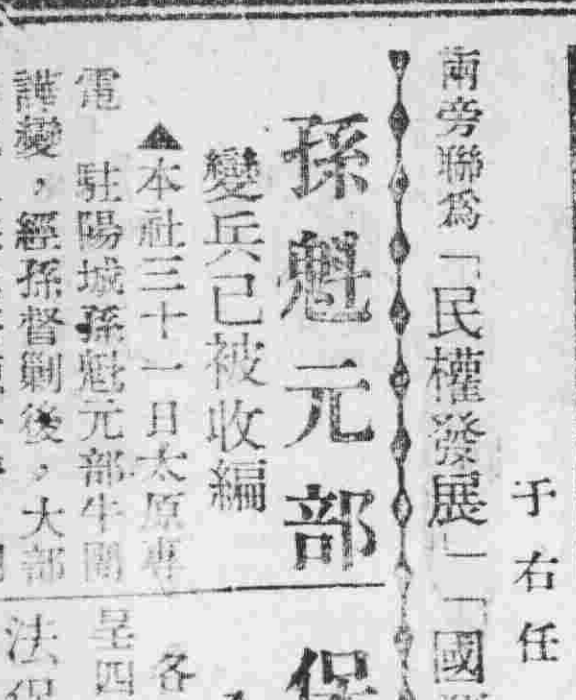 于右任
兩旁聯爲「民權發展」「國
孫魁元部
變兵已被收編
▲本社三十一日太原專
電　駐陽城孫魁元部牛
譁變，經孫督剿後，大部
保
各
呈四
法保